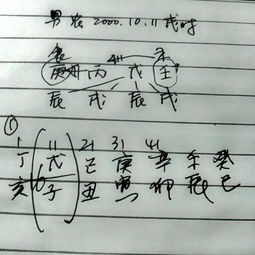 男 农 2000.10.11 戌时
庚 丙 戊 壬
辰 戌 辰 戌
①
1 11 21 31 41
丁 戊 己 庚 辛 壬 癸
亥 子 丑 寅 卯 辰 巳